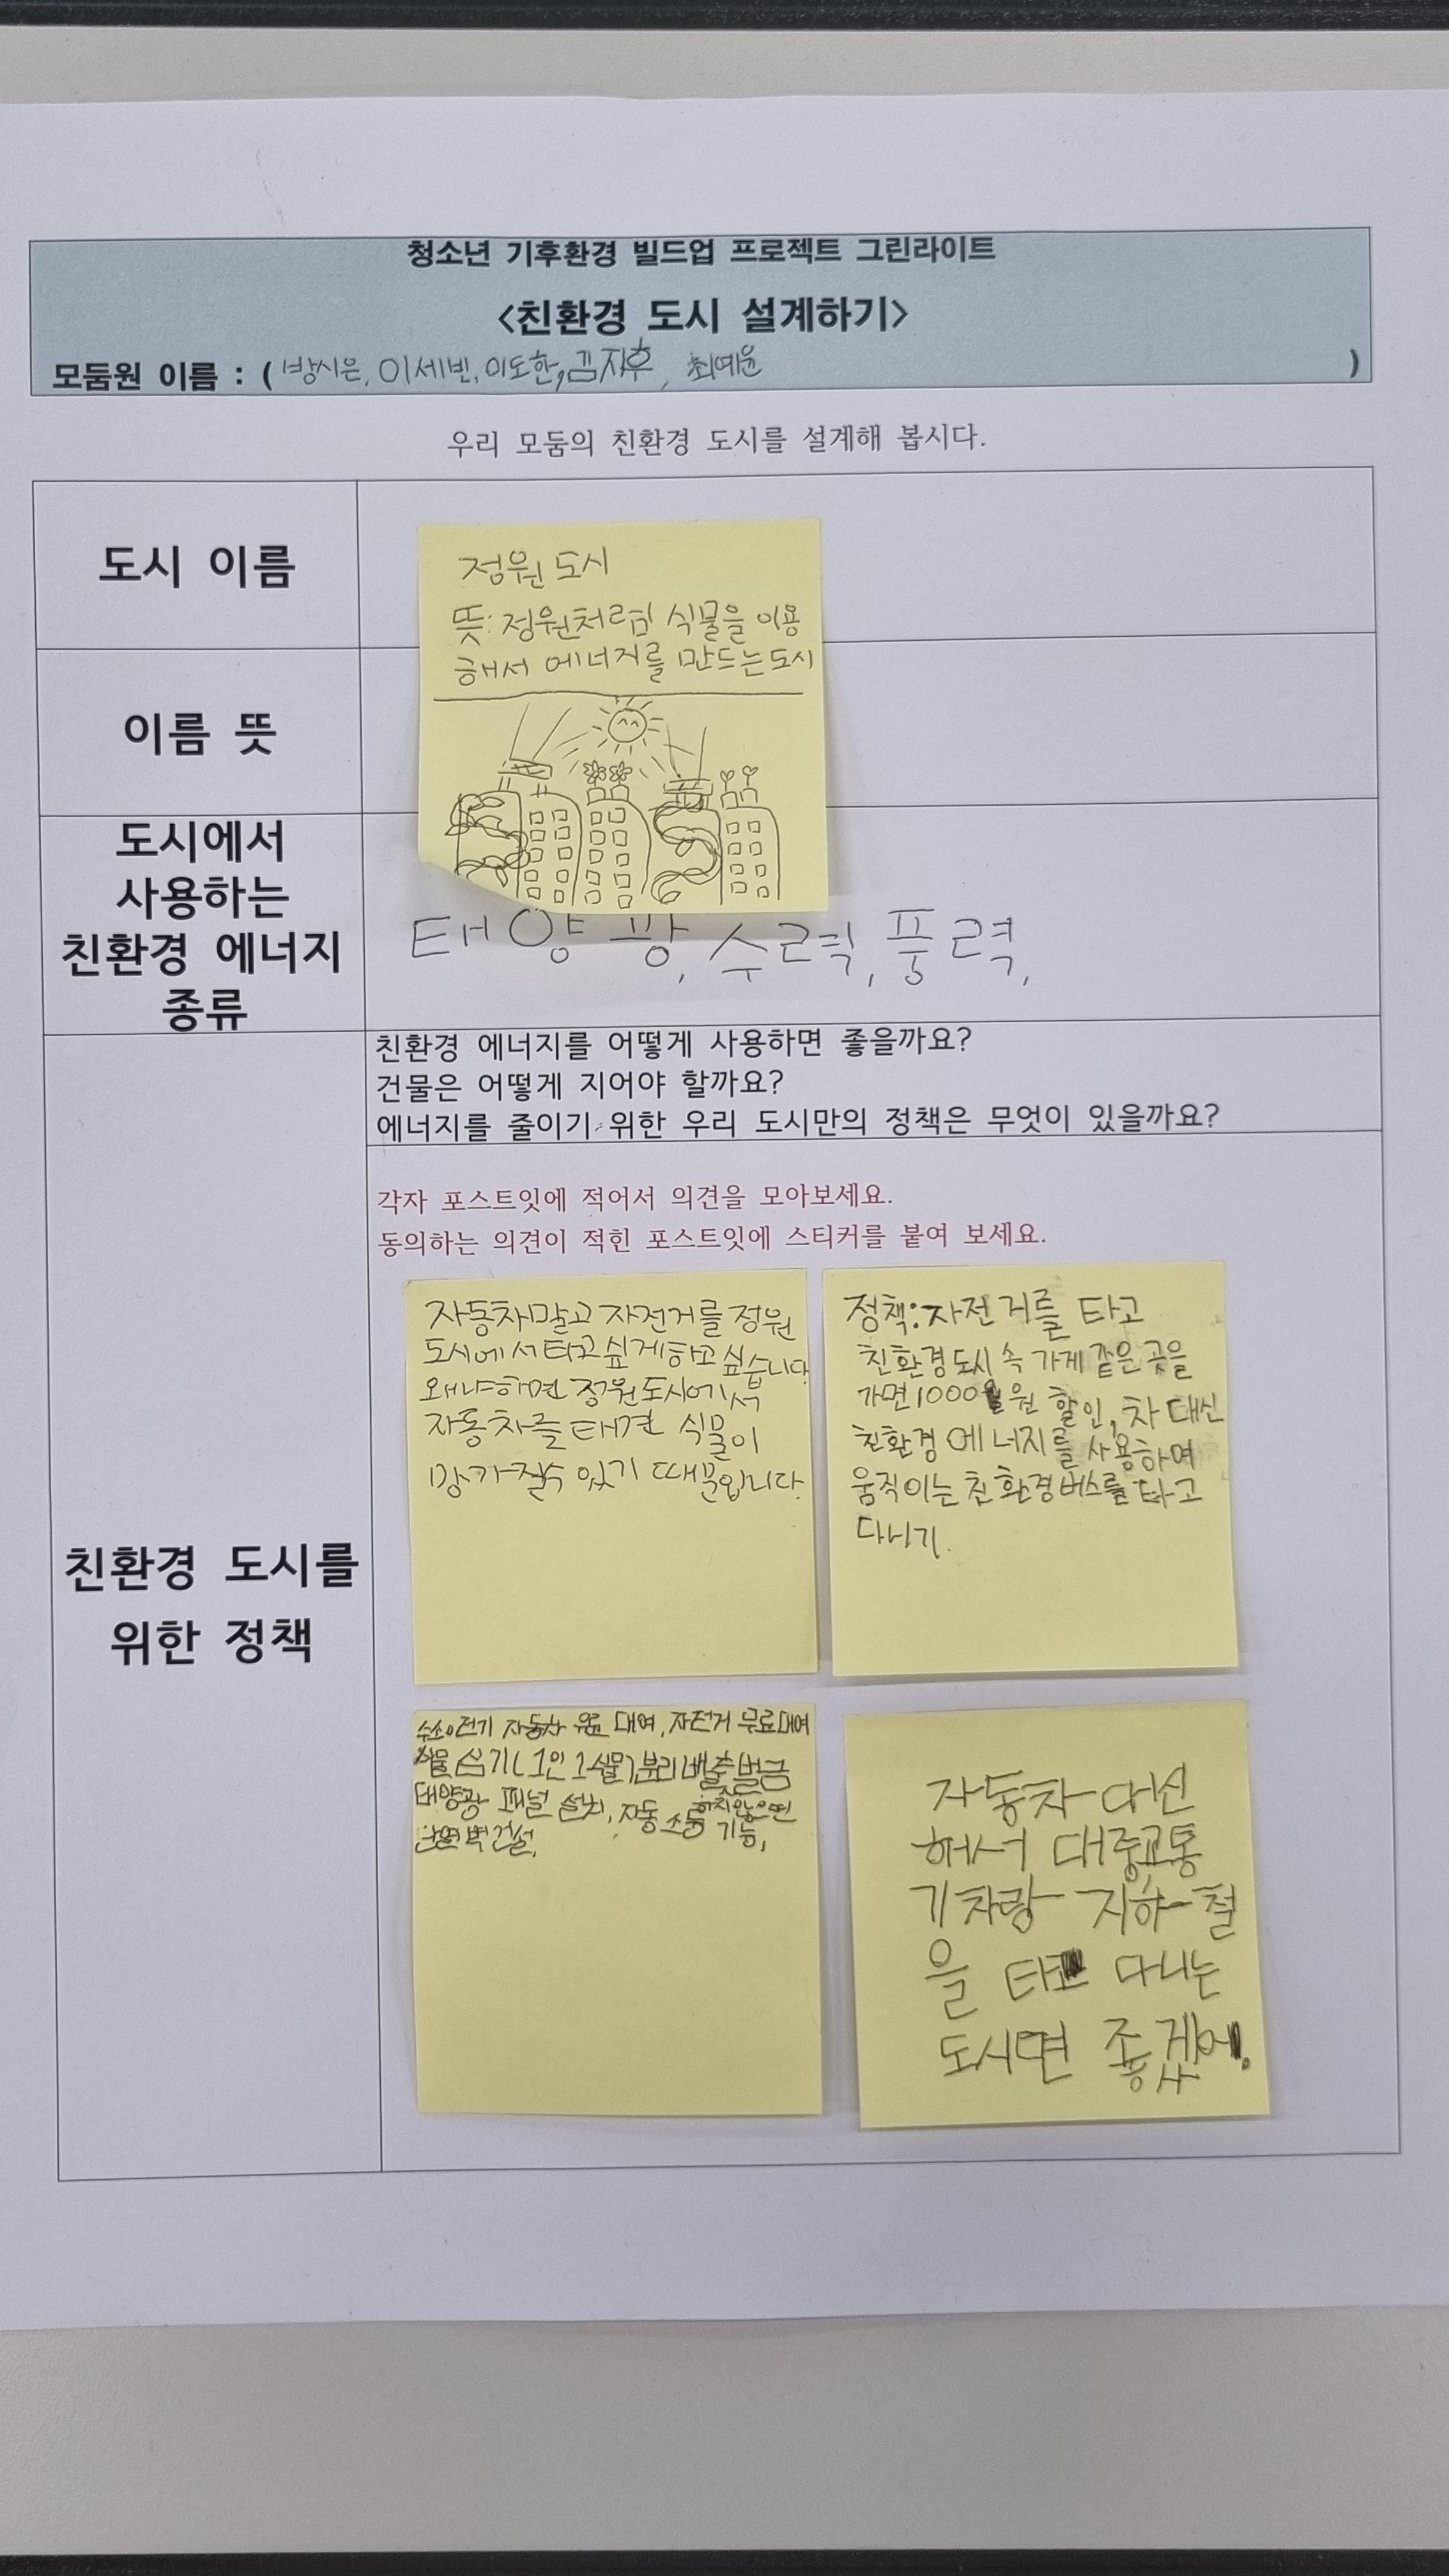 청소년 기후환경 빌드업 프로젝트 그린라이트
<친환경 도시 설계하기>
모둠원 이름 : ( 방시은, 이세빈, 이도한, 김지후, 최예윤 )
우리 모둠의 친환경 도시를 설계해 봅시다.
도시 이름
정원 도시
뜻: 정원처럼 식물을 이용
해서 에너지를 만드는 도시
이름 뜻
도시에서
사용하는
친환경 에너지
종류
태양광, 수력, 풍력,
친환경 에너지를 어떻게 사용하면 좋을까요?
건물은 어떻게 지어야 할까요?
에너지를 줄이기 위한 우리 도시만의 정책은 무엇이 있을까요?
친환경 도시를
위한 정책
각자 포스트잇에 적어서 의견을 모아보세요.
동의하는 의견이 적힌 포스트잇에 스티커를 붙여 보세요.
자동차말고 자전거를 정원
도시에서 타고 싶게 하고 싶습니다
왜냐하면 정원도시에서
자동차를 타면 식물이
망가질수 있기 때문입니다.
정책: 자전거를 타고
친환경도시 속 가게 같은 곳을
가면 1000원 할인, 차 대신
친환경 에너지를 사용하며
움직이는 친환경버스를 타고
다니기.
수소, 전기 자동차 대여, 자전거 무료대여
식물 심기(1인 1식물) 분리배출 벌금
하지않으면
태양광 패널 설치, 자동 소등 기능,
단열벽 건설,
자동차 대신
해서 대중교통
기차랑 지하철
을 타고 다니는
도시면 좋겠어.